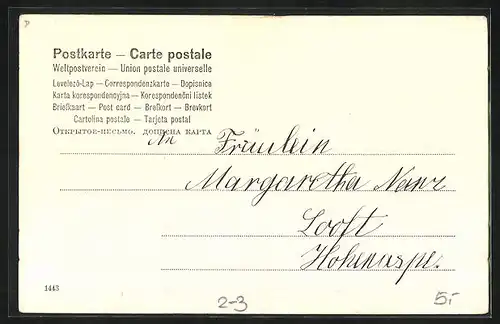 Postkarte — Carte postale
Weltpostverein — Union postale universelle
Levelező-Lap — Correspondenzkarte — Dopisnice
Karta korespondencyjna — Korespondenční lístek
Briefkaart — Post card — Brefkort — Brevkort
Cartolina postale — Tarjeta postal
Открытое-письмо. дописна карта
An Fräulein
Margaretha
Looft
Hohenaspe.
1443
2-3
5,-